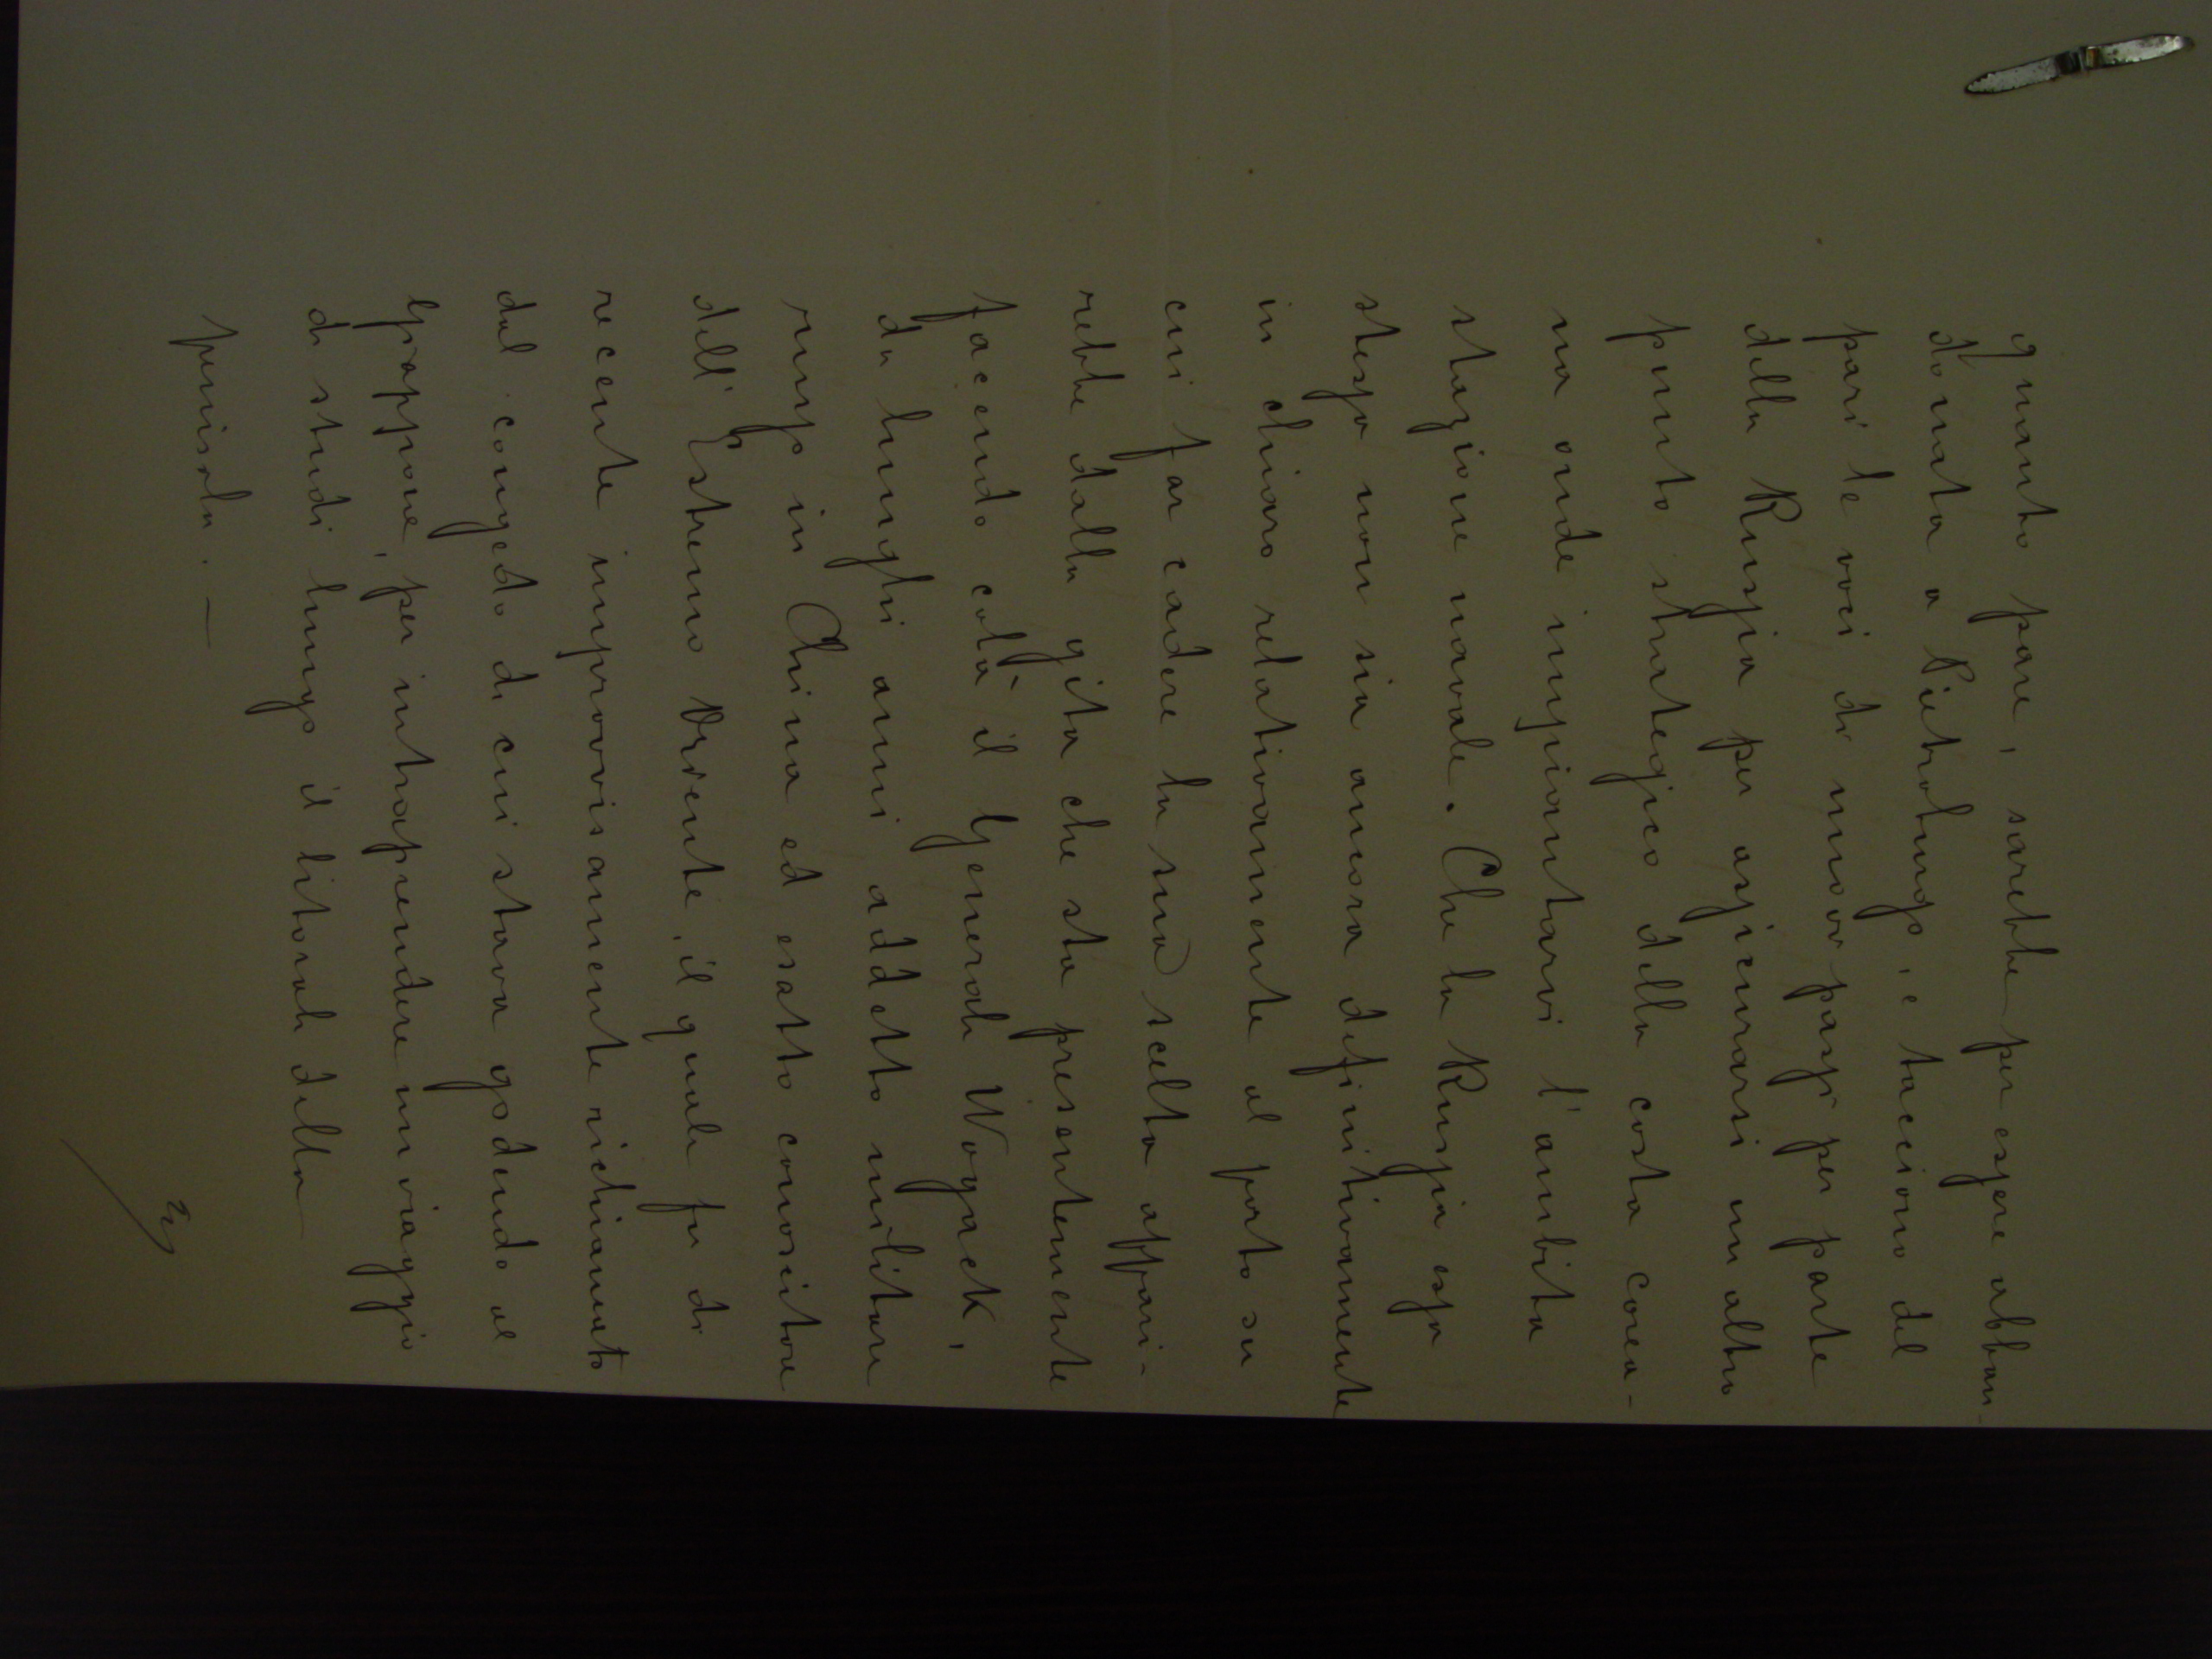 quanto pare, sarebbe per essere abban-
donata a Pietroburgo, e tacciono del
pari le voci di nuovi passi per parte
della Russia per assicurarsi un altro
punto strategico della costa corea-
na onde impiantarvi l'ambita
stazione navale. Che la Russia essa
stessa non sia ancora definitivamente
in chiaro relativamente al porto su
cui far cadere la sua scelta appari-
rebbe dalla gita che sta presentemente
facendo colà il Generale Wogack,
da lunghi anni addetto militare
russo in China ed esatto conoscitore
dell'Estremo Oriente, il quale fu di
recente improvvisamente richiamato
dal congedo di cui stava godendo al
Giappone, per intraprendere un viaggio
di studi lungo il litorale della
penisola. —